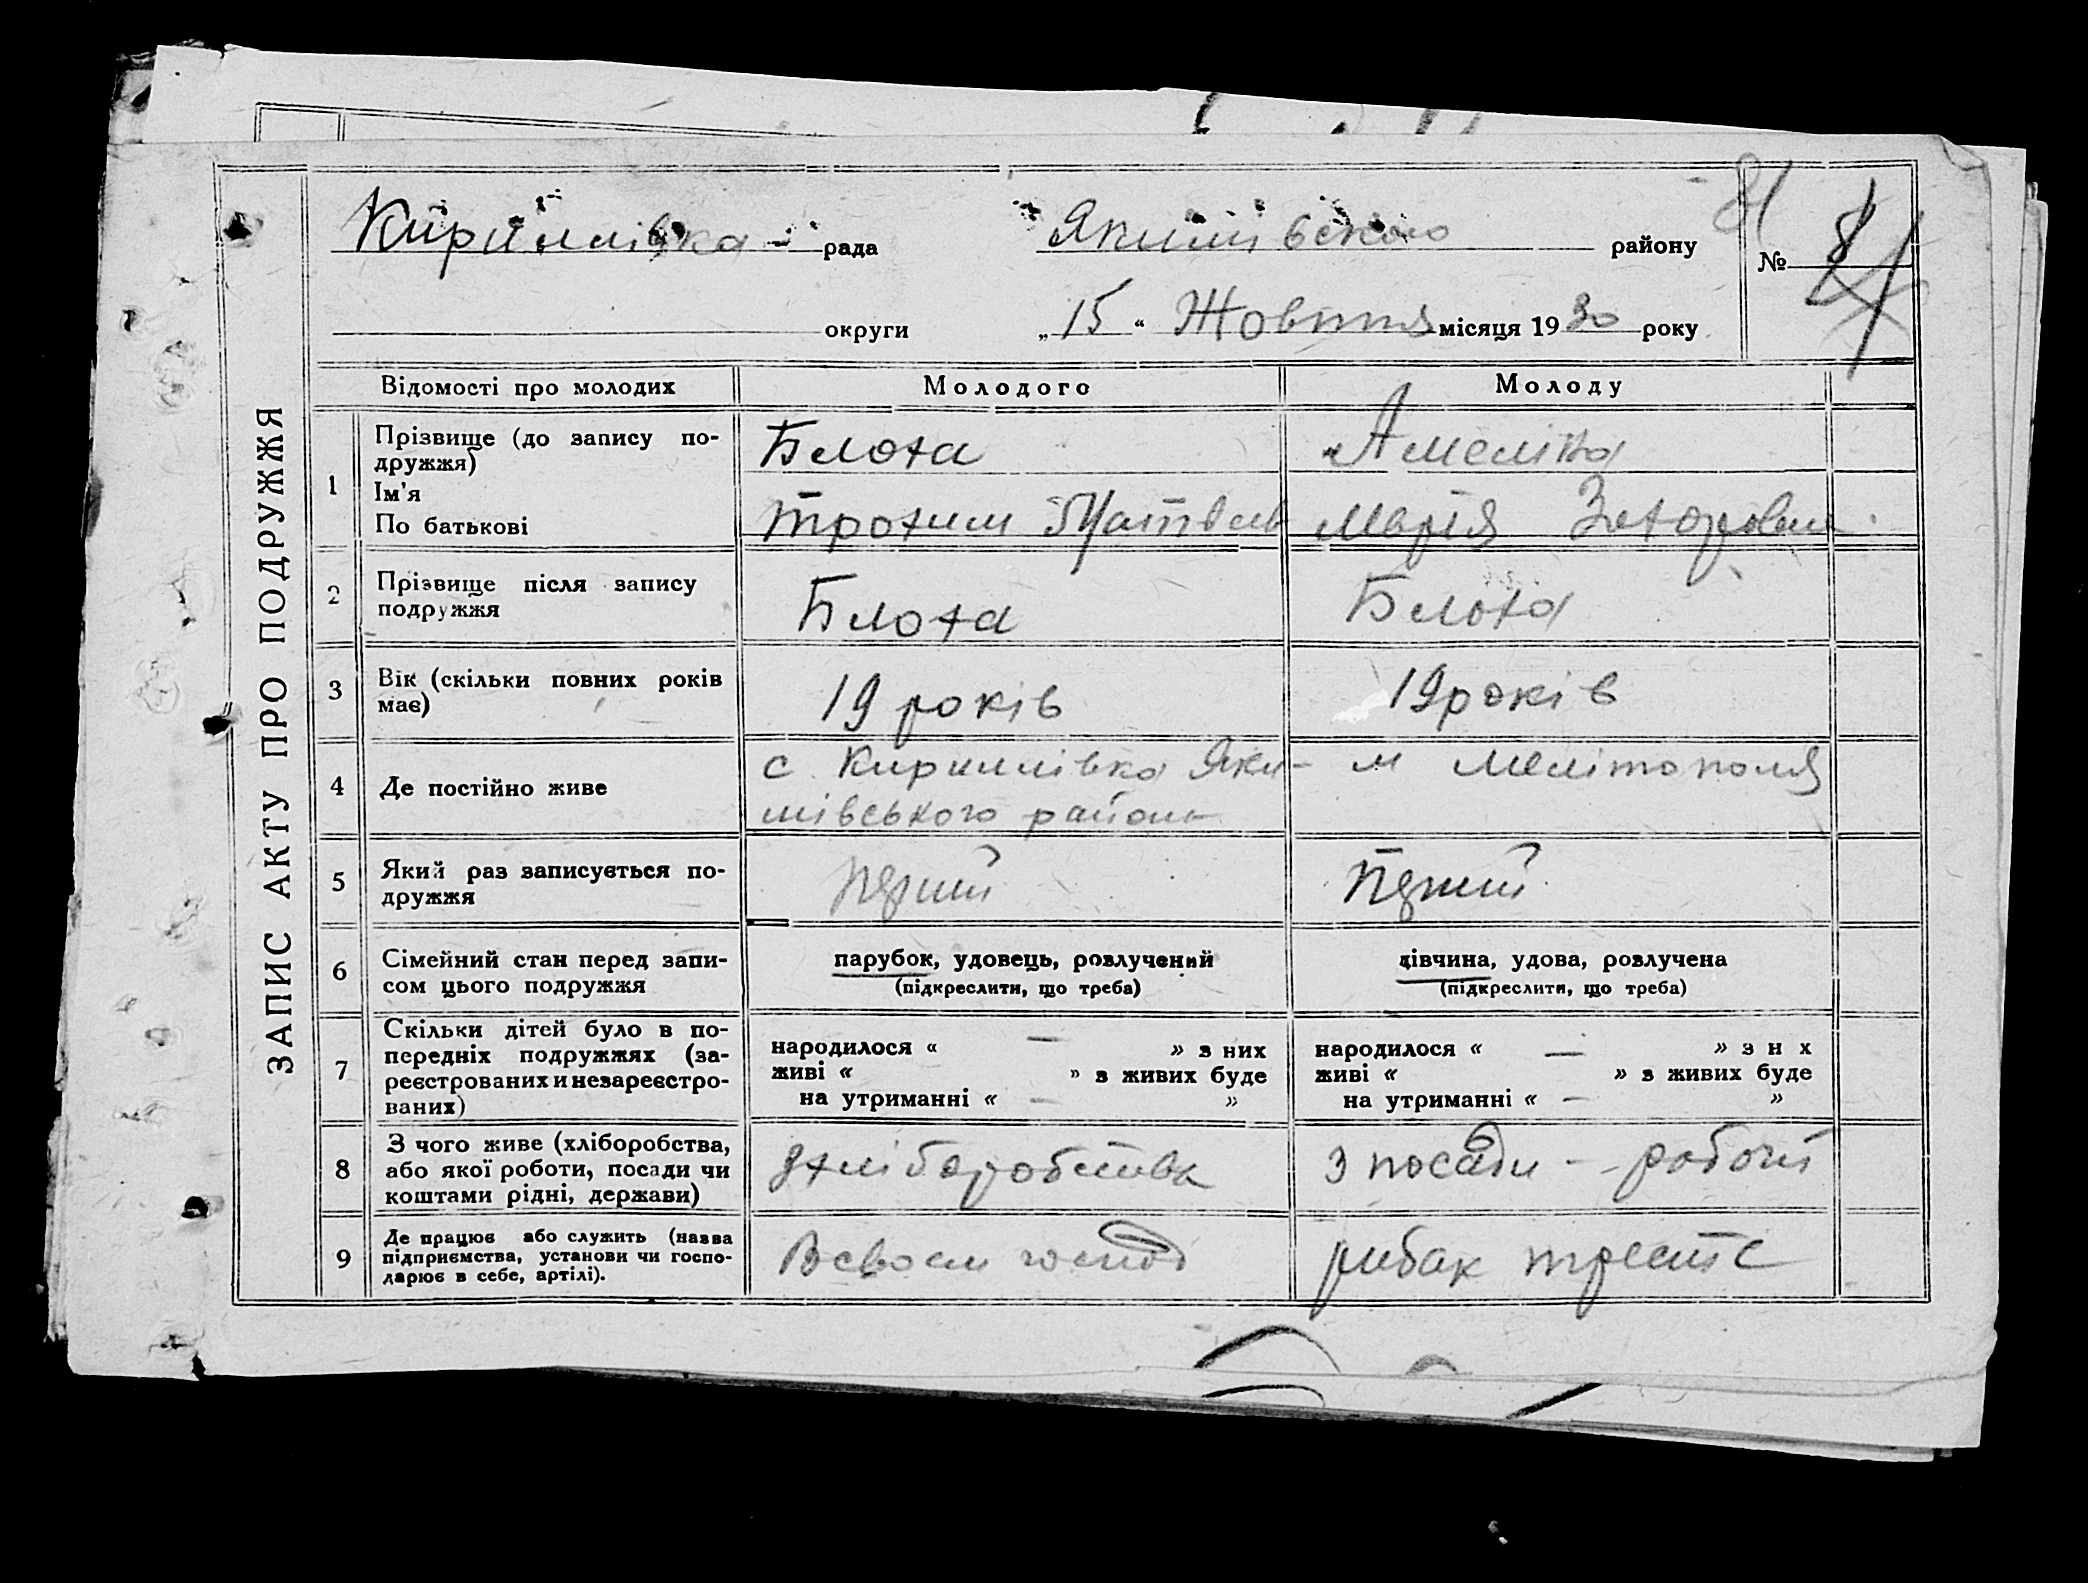 ЗАПИС АКТУ ПРО ПОДРУЖЖЯ
Кирилівка рада Якимівського району № 8
округи „15“ Жовтня місяця 1930 року
Відомості про молодих Молодого Молоду
1 Прізвище (до запису по-
дружжя)
Ім'я
По батькові
Блоха
Трохим Матвієв
Амеліна
Марія
2 Прізвище після запису
подружжя
Блоха
Блоха
3 Вік (скільки повних років
має)
19 років
19 років
4 Де постійно живе
с. Кирилівка Яки-
мівського району
м Мелітополя
5 Який раз записується по-
дружжя
Перший
Перший
6 Сімейний стан перед запи-
сом цього подружжя
парубок, удовець, розлучений
(підкреслити, що треба)
дівчина, удова, розлучена
(підкреслити, що треба)
7 Скільки дітей було в по-
передніх подружжях (за-
реєстрованих и незареєстро-
ваних)
народилося « — » з них
живі « » з живих буде
на утриманні « — »
народилося « — » з н х
живі « » з живих буде
на утриманні « — »
8 З чого живе (хліборобства,
або якої роботи, посади чи
коштами рідні, держави)
з хліборобства
з посади - робочий
9 Де працює або служить (назва
підприємства, установи чи госпо-
дарює в себе, артілі).
В своєм господ
рибак тресті